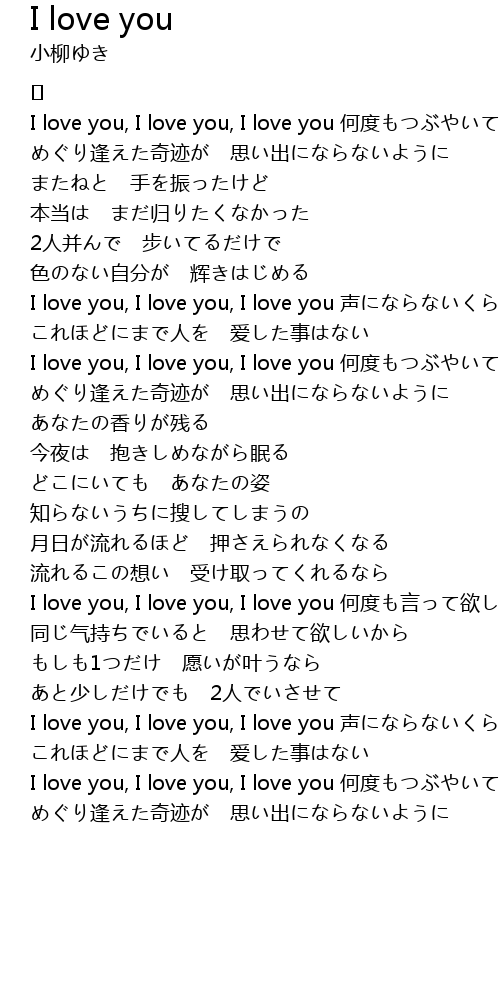 I love you
小柳ゆき
[]
I love you, I love you, I love you 何度もつぶやいて
めぐり逢えた奇迹が　思い出にならないように
またねと　手を振ったけど
本当は　まだ归りたくなかった
2人并んで　步いてるだけで
色のない自分が　辉きはじめる
I love you, I love you, I love you 声にならないくら
これほどにまで人を　爱した事はない
I love you, I love you, I love you 何度もつぶやいて
めぐり逢えた奇迹が　思い出にならないように
あなたの香りが残る
今夜は　抱きしめながら眠る
どこにいても　あなたの姿
知らないうちに搜してしまうの
月日が流れるほど　押さえられなくなる
流れるこの想い　受け取ってくれるなら
I love you, I love you, I love you 何度も言って欲し
同じ气持ちでいると　思わせて欲しいから
もしも1つだけ　愿いが叶うなら
あと少しだけでも　2人でいさせて
I love you, I love you, I love you 声にならないくら
これほどにまで人を　爱した事はない
I love you, I love you, I love you 何度もつぶやいて
めぐり逢えた奇迹が　思い出にならないように